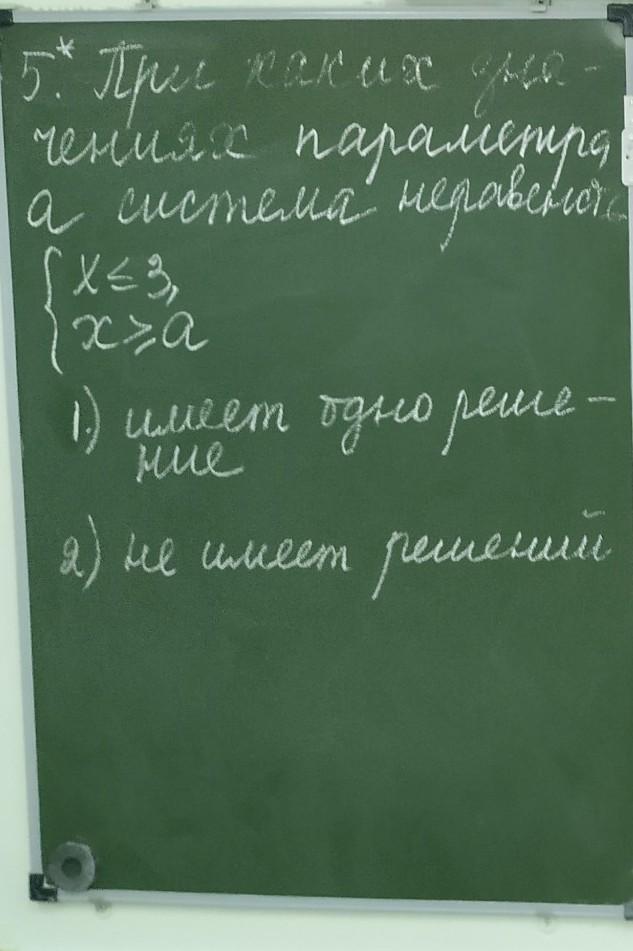 5.* При каких зна-
чениях параметра
а система неравенств
{ x ≤ 3,
x ⩾ a
1.) имеет одно реше-
ние
2) не имеет решений